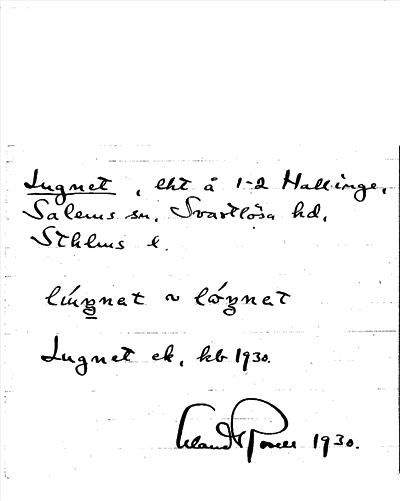 Lugnet, lht å 1-2 Hallinge,
Salems sn, Svartlösa hd,
Sthlms l.
Lugnet ek, kb 1930.
1930.